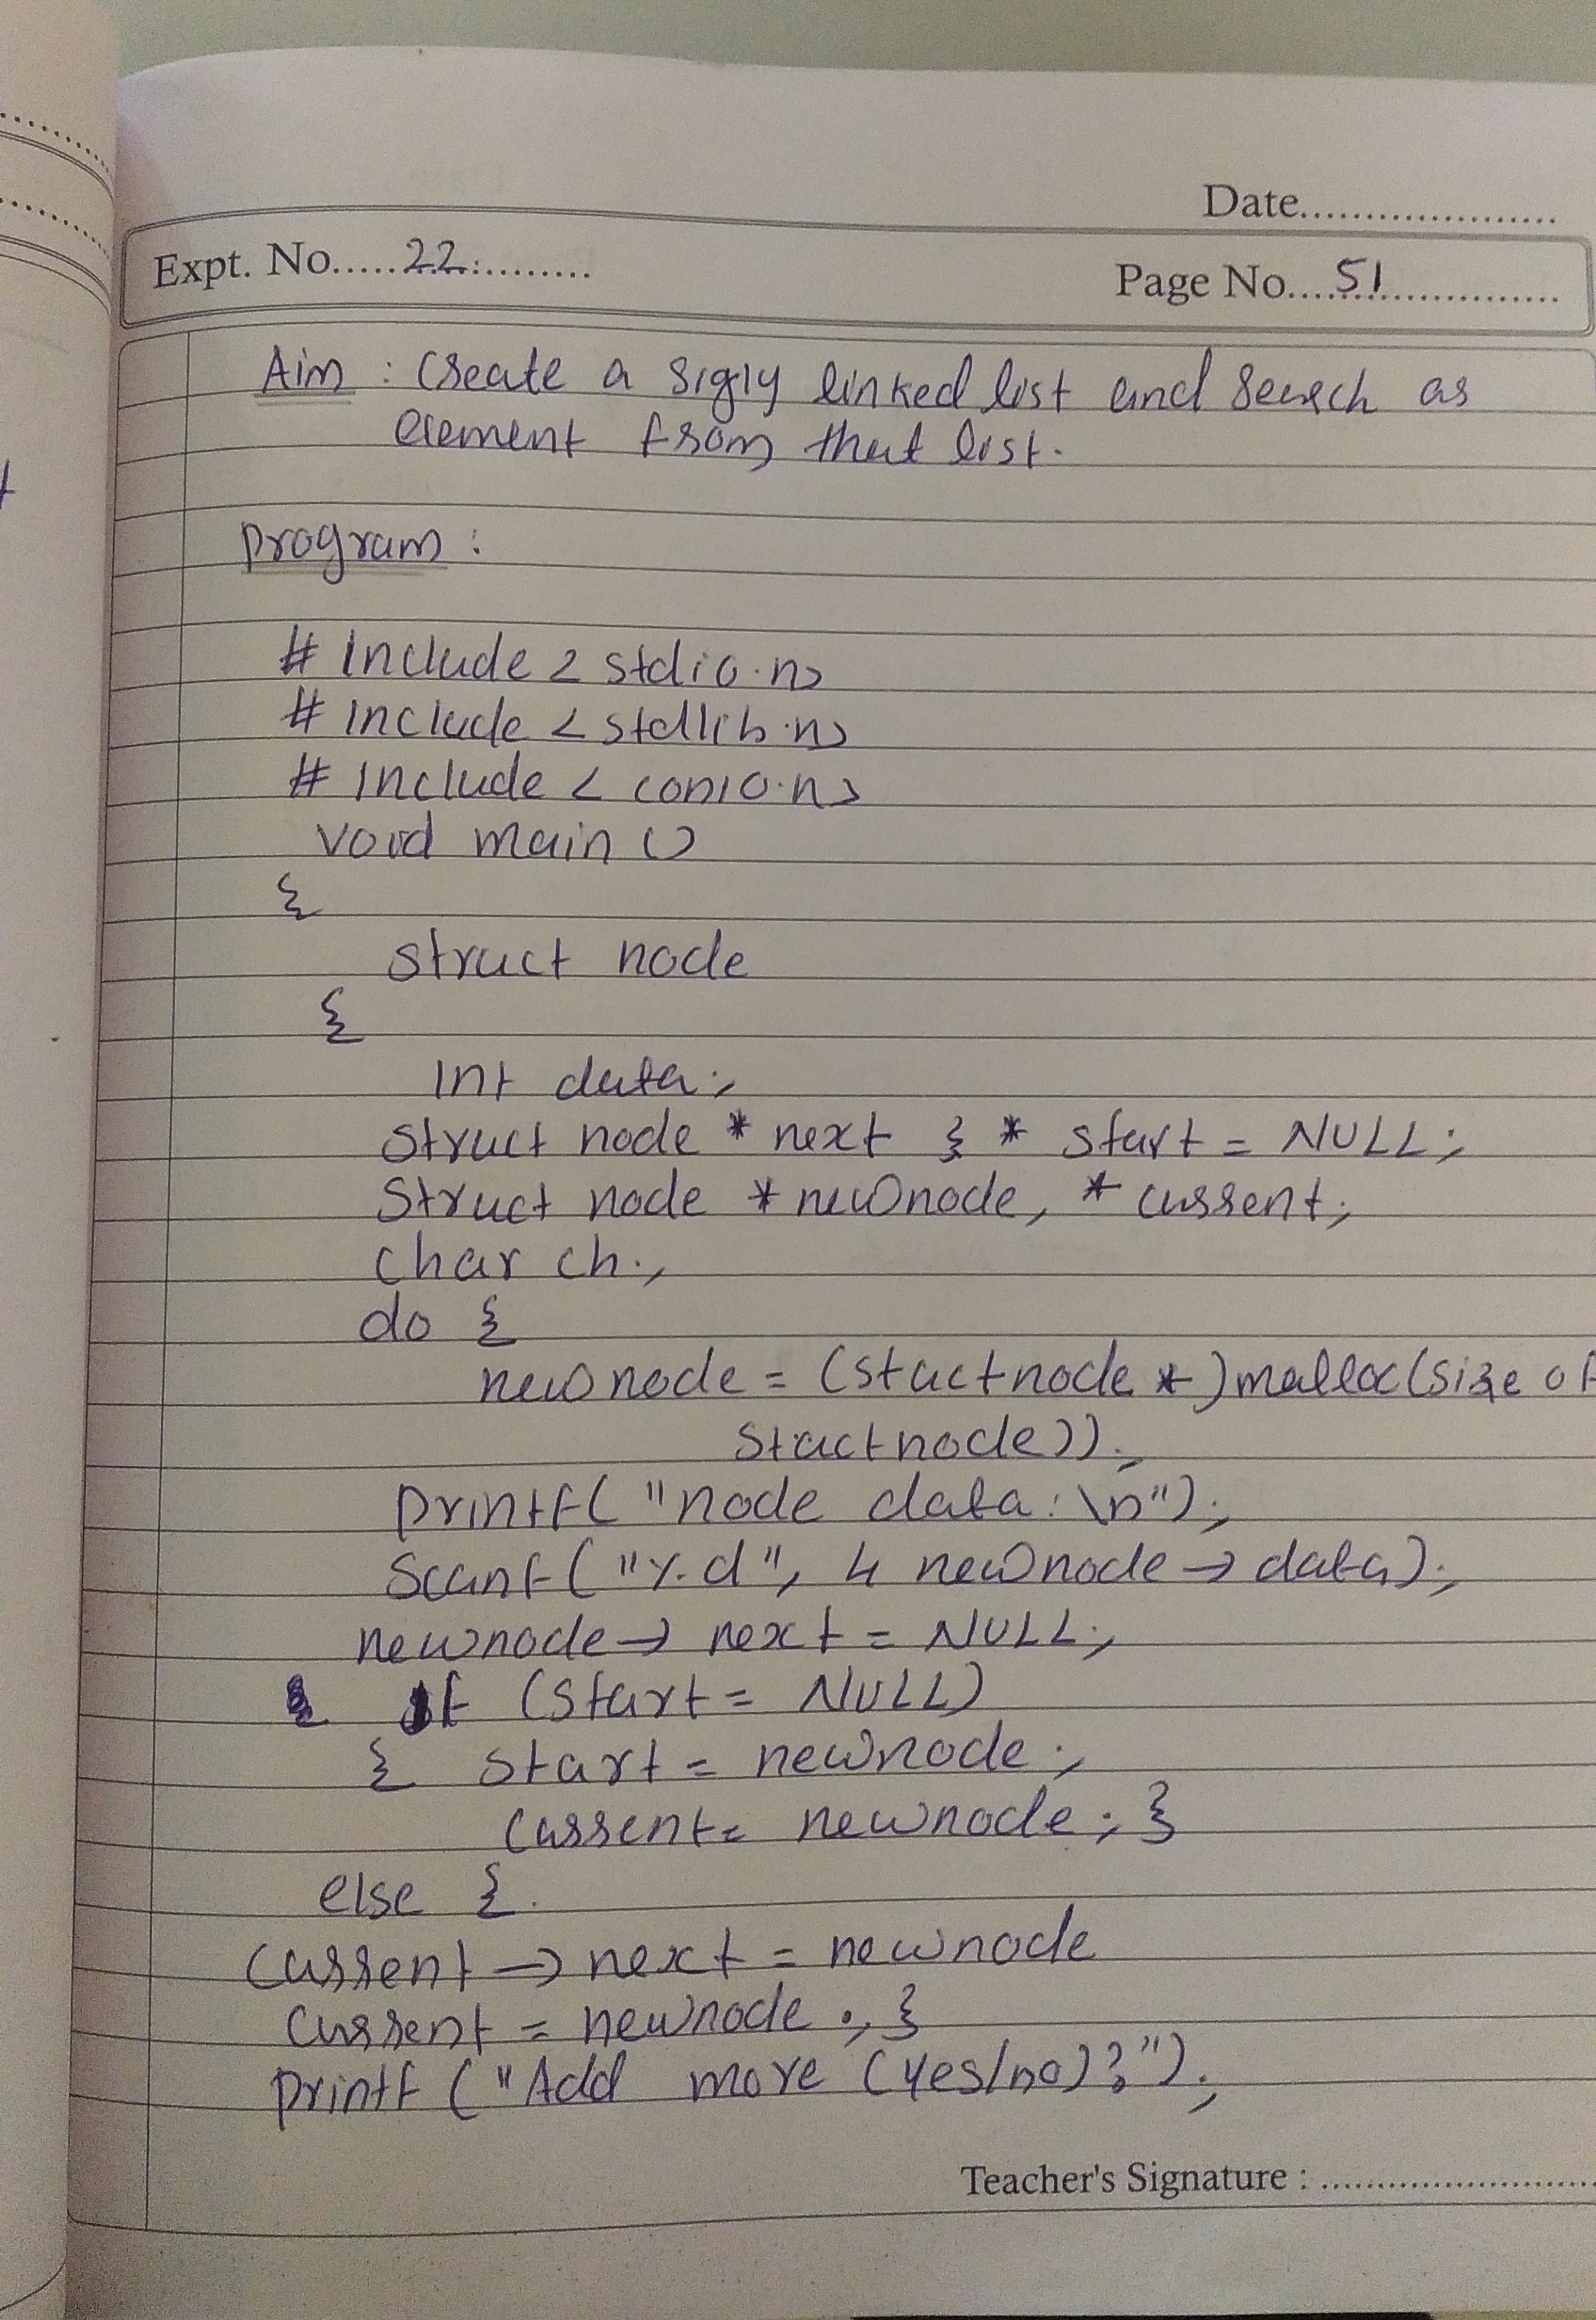 Date....................
Expt. No.....22.............
Page No....51....................
Aim : Create a sigly linked list and search as
element from that list.
Program :
# Include < stdio.h>
# Include < stdlib.h>
# Include < conio.h>
void main ()
{
struct node
{
int data;
struct node * next } * start = NULL;
Struct node * newnode, * current;
char ch;
do {
newnode = (stuctnode *)malloc(size of
stuctnode));
printf( "node data: \n");
Scanf( "%d", & newnode → data);
newnode → next = NULL;
If (start = NULL)
{ start = newnode ;
current= newnode ; }
else {
current → next = newnode
current = newnode ; }
printf ( "Add more (yes/no)?");
Teacher's Signature : ......................